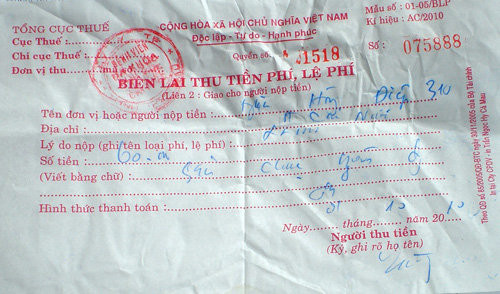 TỔNG CỤC THUẾ
Cục Thuế :
Chi cục Thuế :
Đơn vị thu:
CỘNG HÒA XÃ HỘI CHỦ NGHĨA VIỆT NAM
Độc lập - Tự do - Hạnh phúc
Mẫu số : 01-05/BLP
Kí hiệu : AC/2010
Quyển số: 1518
Số : 075888
BIÊN LAI THU TIỀN PHÍ, LỆ PHÍ
(Liên 2 : Giao cho người nộp tiền)
Tên đơn vị hoặc người nộp tiền: Điệp 310
Địa chỉ:
Lý do nộp (ghi tên loại phí, lệ phí)
Số tiền : 60.
(Viết bằng chữ) : Sáu chục
Hình thức thanh toán :
Ngày 21 tháng 10 năm 2010
Người thu tiền
(Ký, ghi rõ họ tên)